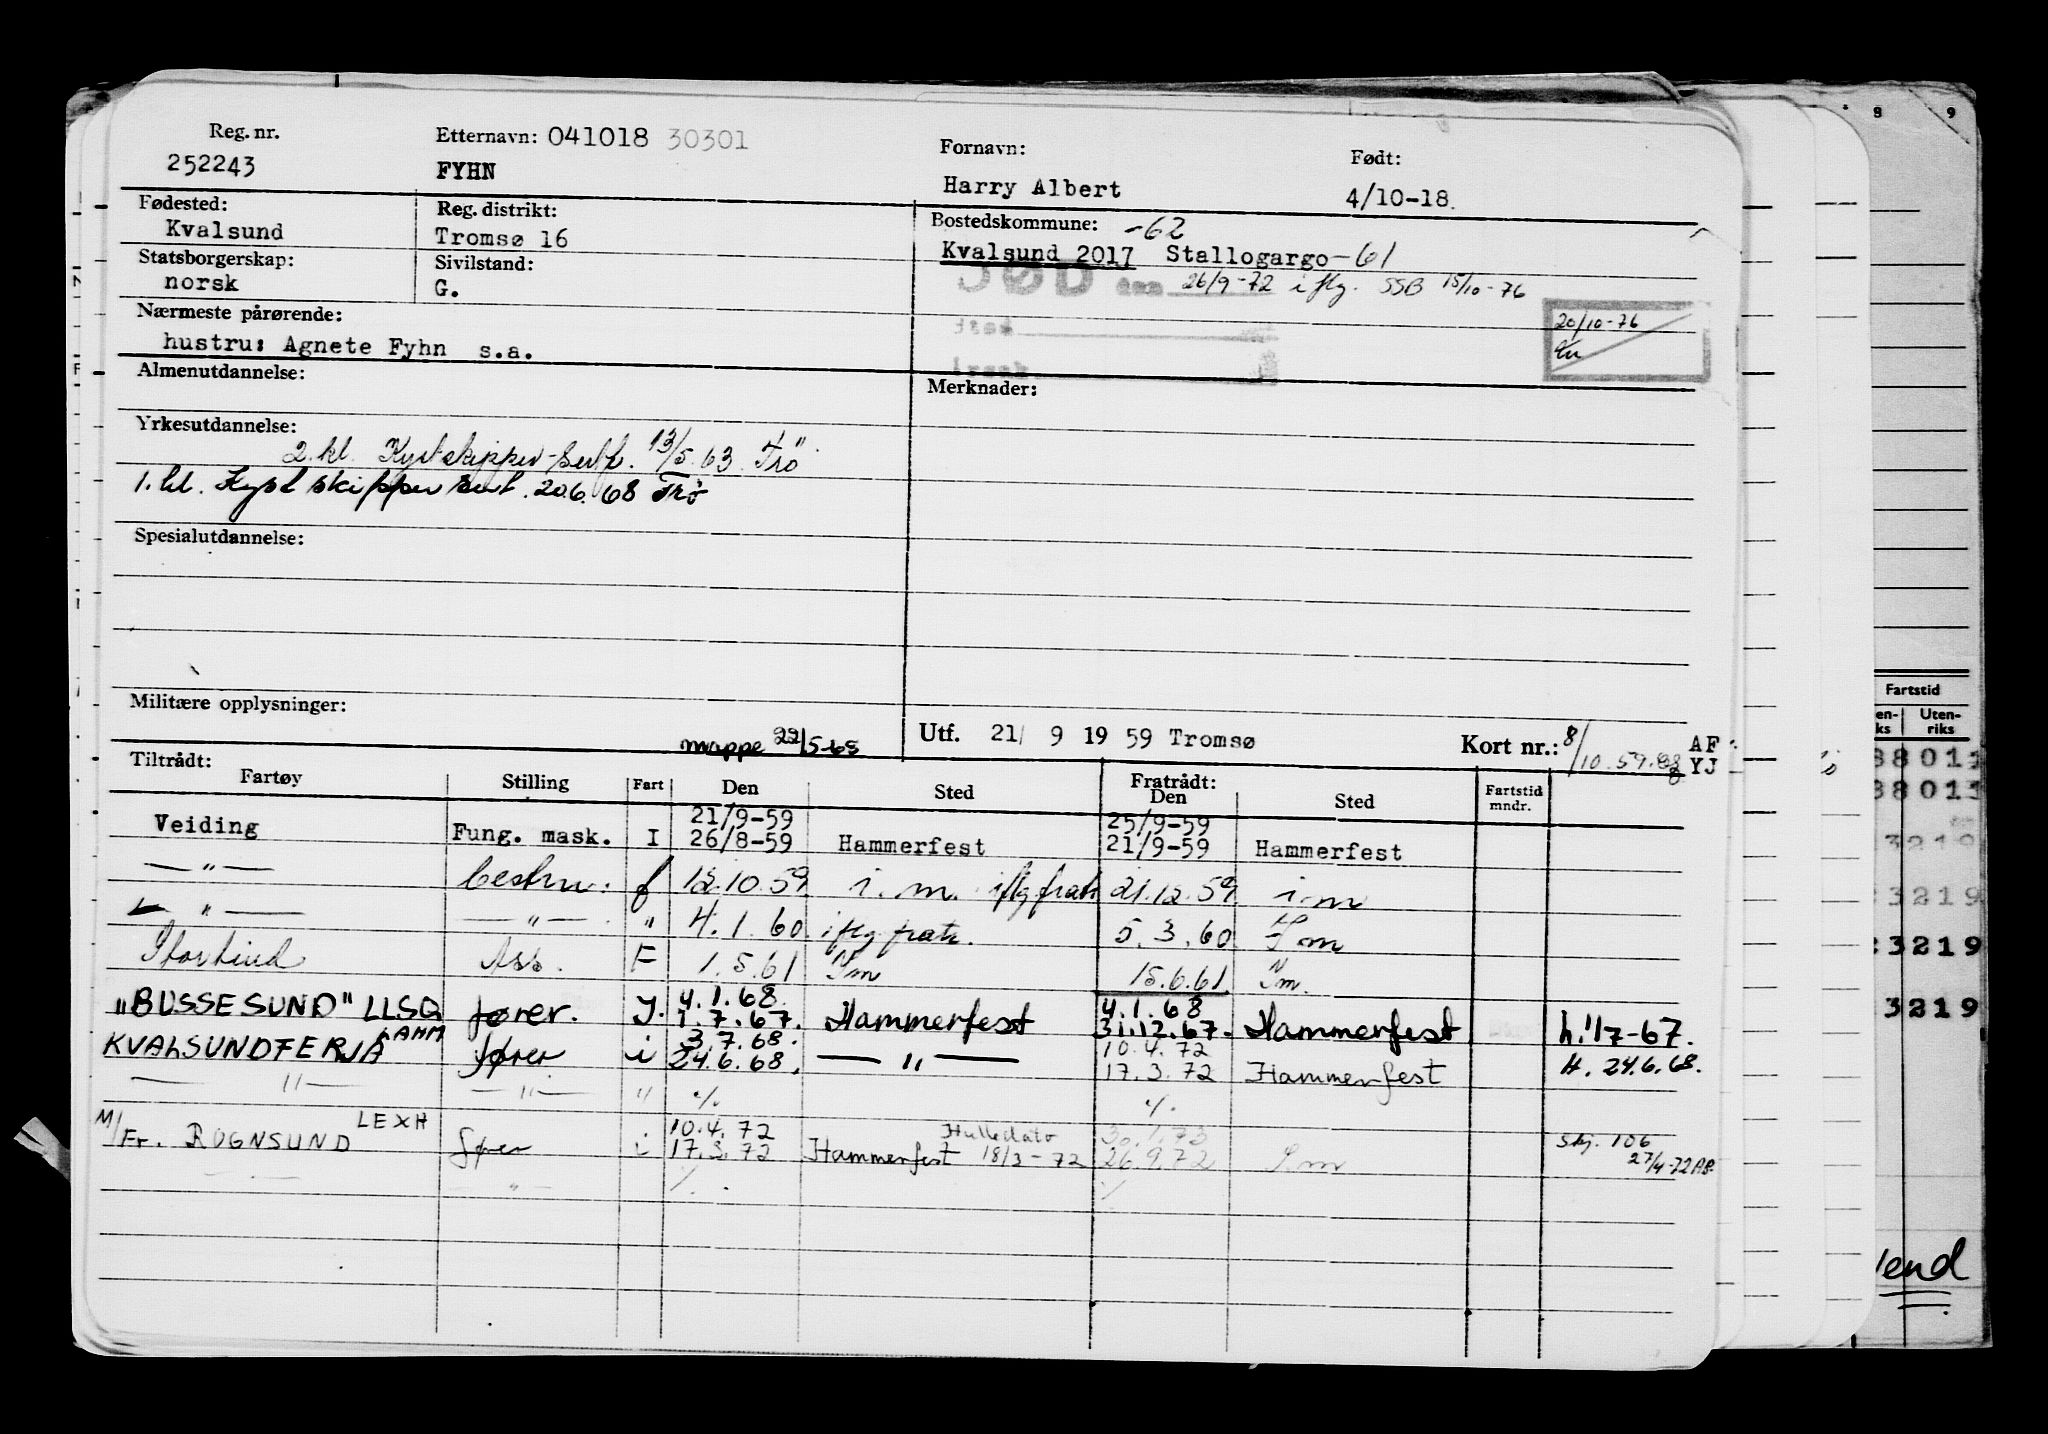 Reg. nr. Etternavn: 041018 30301 Fornavn: Født:
252243 FYHN Harry Albert 4/10-18.
Fødested: Reg. distrikt: Bostedskommune: -62
Kvalsund Tromsø 16 Kvalsund 2017 Stallogargo-61
Statsborgerskap: Sivilstand:
norsk G. DØD den 26/9-72 iflg. SSB 15/10-76
Nærmeste pårørende: Sted 20/10-76
hustru: Agnete Fyhn s.a.
Almenutdannelse: Merknader:
Yrkesutdannelse:
2. kl. Kystskipper-sert. 13/5.63 Trö
1. kl. Kystskippersert. 20.6.68 Trö
Spesialutdannelse:
Militære opplysninger:
mappe 22/5-65 Utf. 21/ 9 19 59 Tromsø Kort nr.: 8/10.59. AF
YJ
Tiltrådt: Fratrådt:
Fartøy Stilling Fart Den Sted Den Sted Fartstid mndr.
21/9-59 25/9-59
Veiding Fung. mask. I 26/8-59 Hammerfest 21/9-59 Hammerfest
— " — bestm. f 12.10.59 i.m. iflg fratr 21.12.59 i.m
— " — — " — " 4.1.60. iflg fratr. 5.3.60 I m
Ass. F 1.5.61 I m 15.6.61 I m.
4.1.68. 4.1.68
"BUSSESUND" LLSG fører. I. 1.7.67. Hammerfest 31.12.67. Hammerfest h.1/7-67.
LAHM 3.7.68. 10.4.72
KVALSUNDFERJA fører i 24.6.68. — " — 17.3.72 Hammerfest H. 24.6.68.
— " — — " — " ./. ./.
LEXH 10.4.72 Hulledato 30.1.73 skj. 106
M/Fr. ROGNSUND fører i 17.3.72 Hammerfest 18/3-72 26.9.72 I m 27/4-72 AB.
— " — ./. ./.
8 9
Fartstid
Uten-
riks
88011
88011
3219
3219
3219
3219
Vend